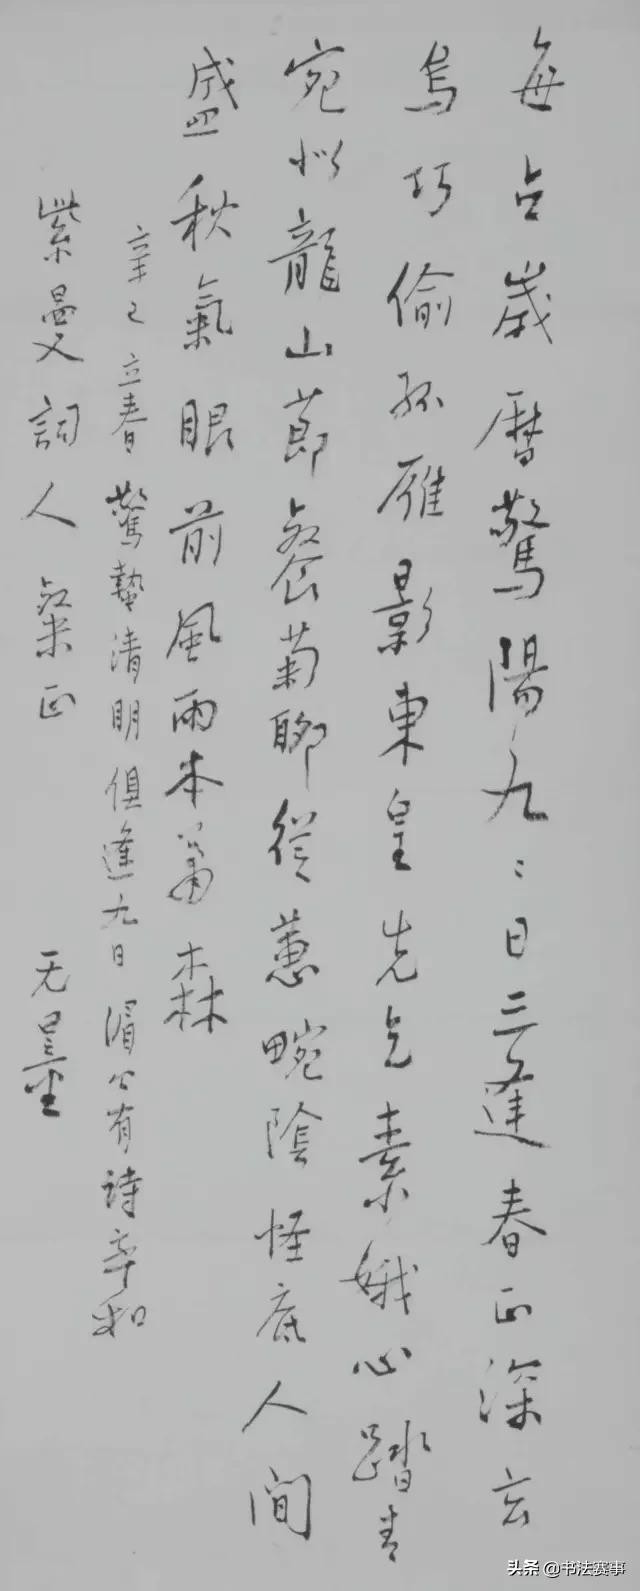 每占歲曆驚陽九〻日三逢春正深玄
烏巧偷孤雁影東皇先乞素娥心踏青
宛似龍山節餐菊聊從蕙畹陰怪底人間
盛秋氣眼前風雨本蕭森
辛巳立春驚蟄清明俱逢九日公有詩率和
紫曼詞人粲正 无量
头条 @书法赛事